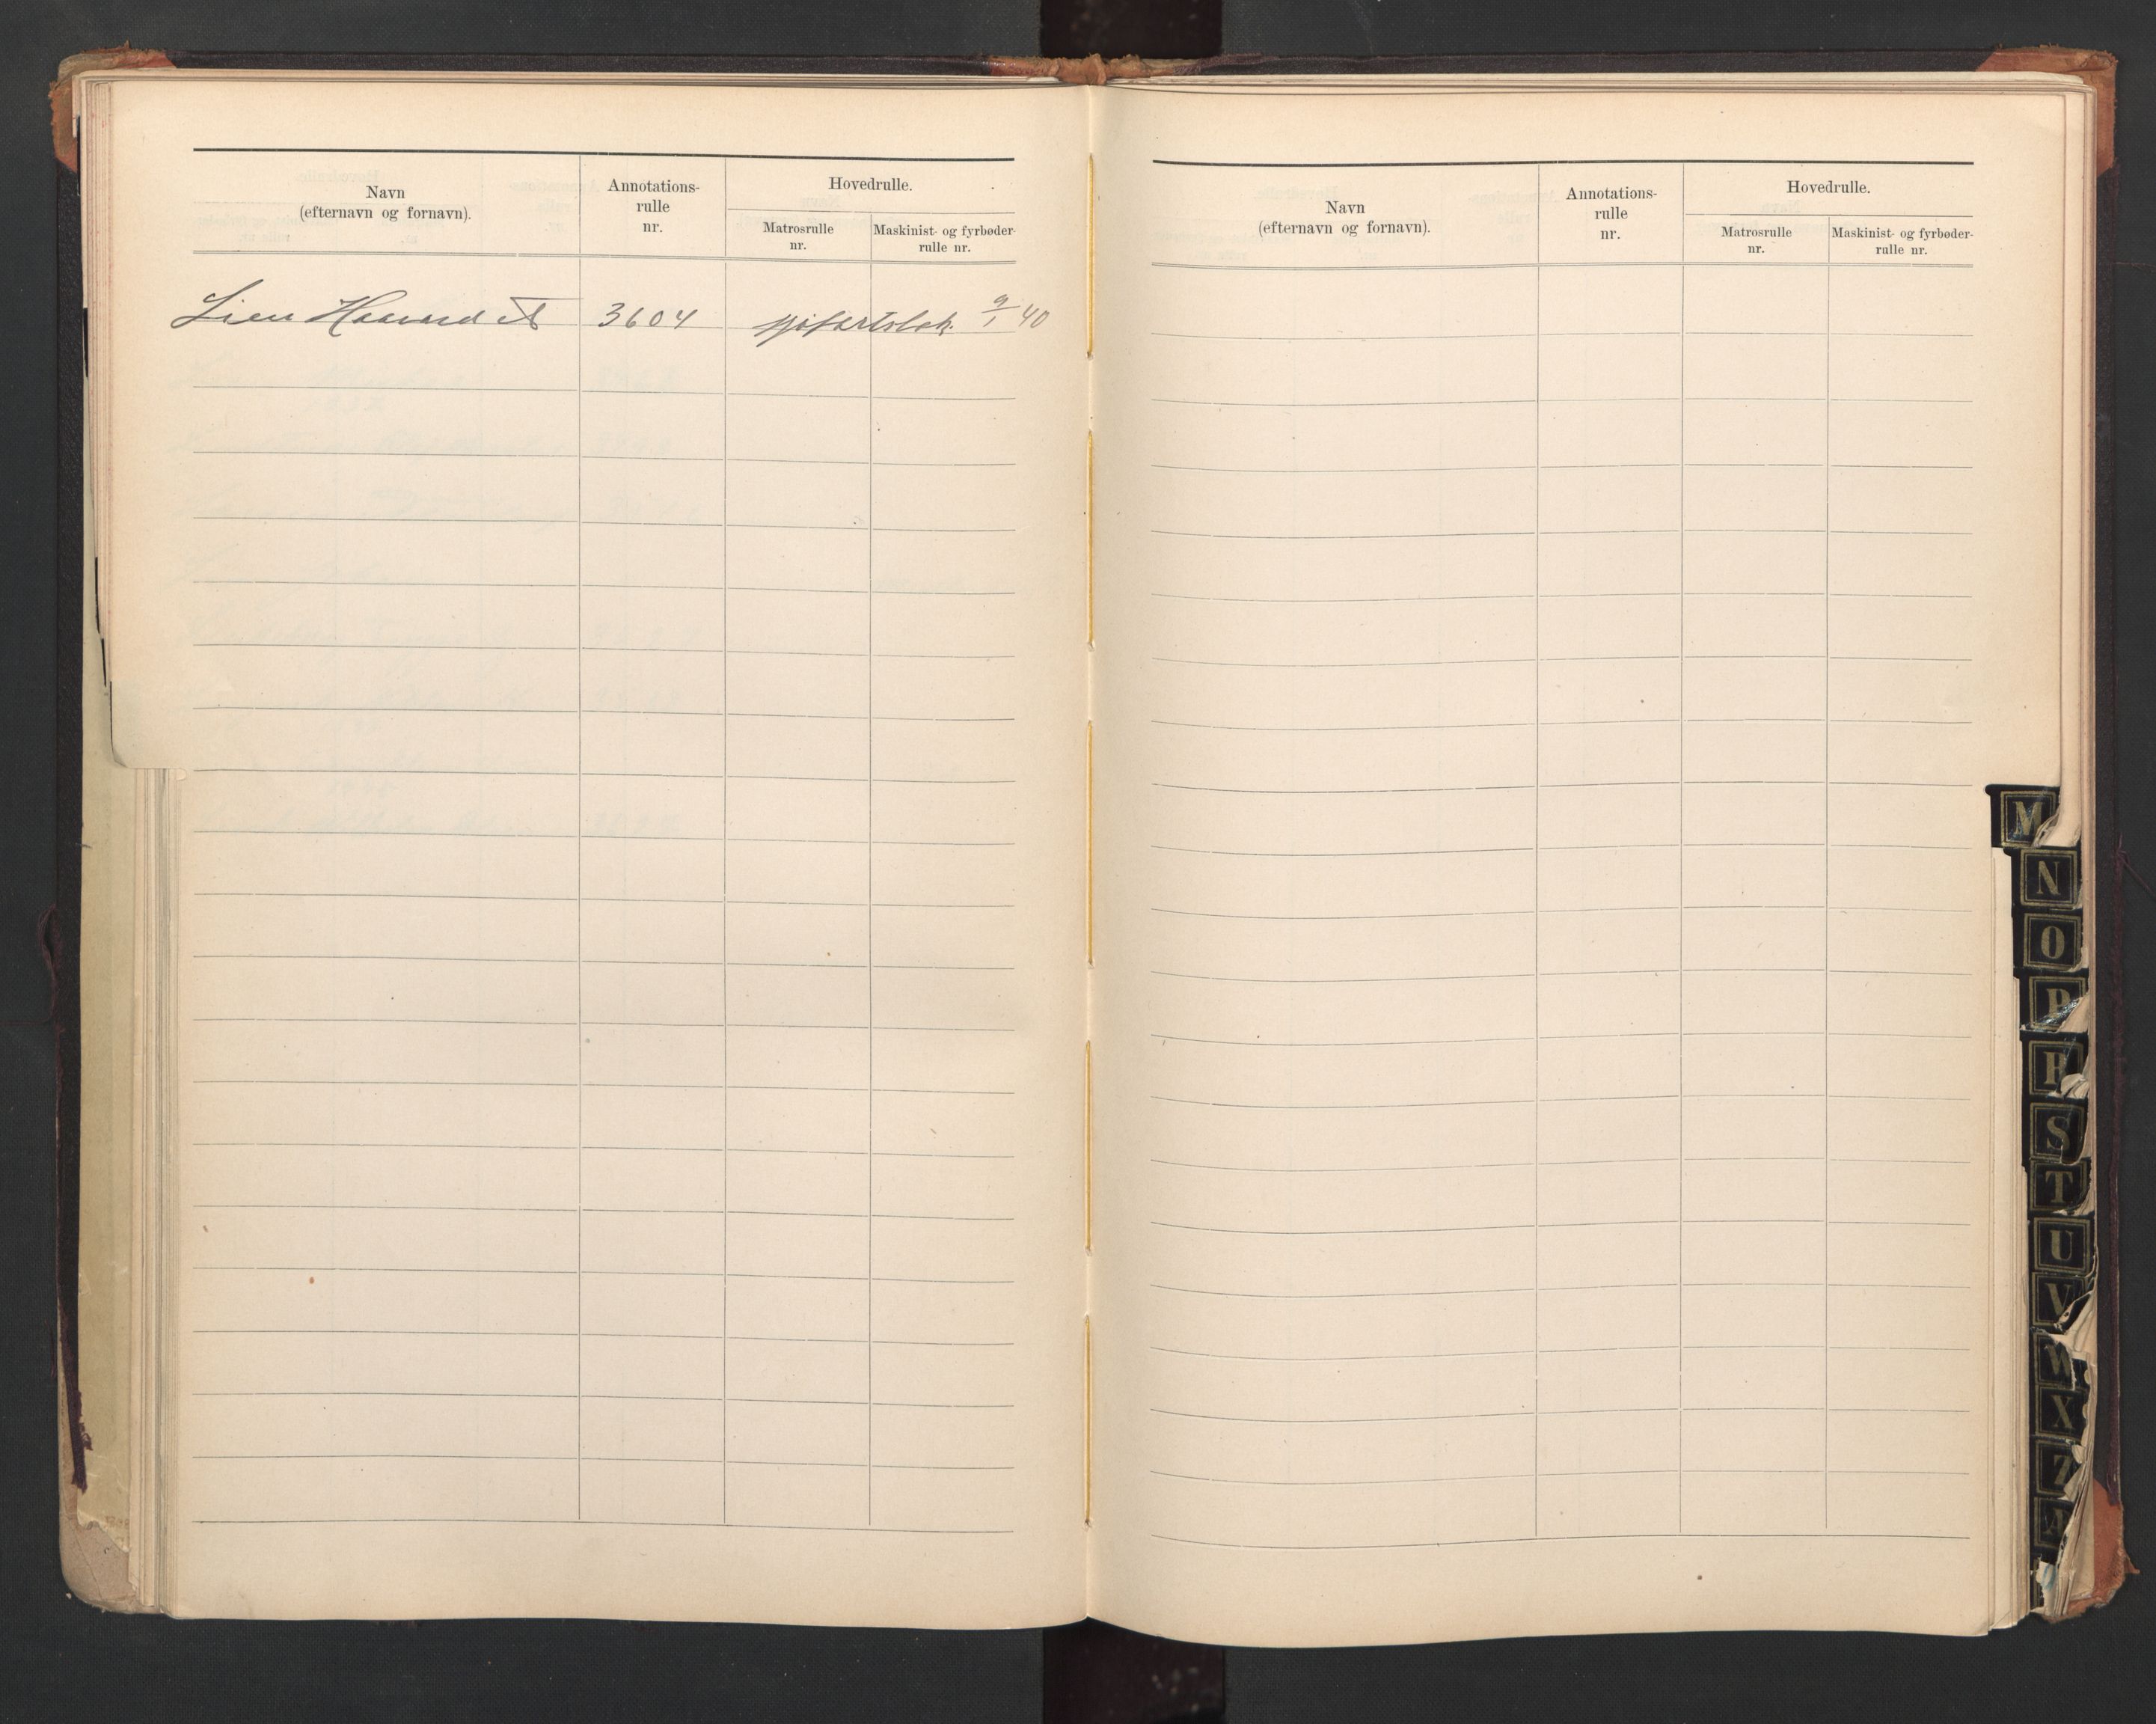 Navn
(efternavn og fornavn).
Annotations-
rulle
nr.
Hovedrulle.
Matrosrulle
nr.
Maskinist- og fyrbøder-
rulle nr.
Lien Haavard A 3604 sjøfartsbok 9/1 40
Navn
(efternavn og fornavn).
Annotations-
rulle
nr.
Hovedrulle.
Matrosrulle
nr.
Maskinist- og fyrbøder-
rulle nr.
M
N
O
P
R
S
T
U
V
W
X
Z